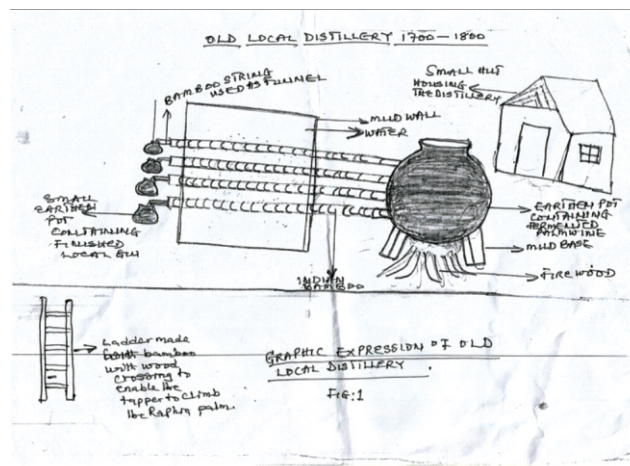 OLD LOCAL DISTILLERY 1700-1800
BAMBOO STRING
USED AS FUNNEL
SMALL HUT
HOUSING
THE DISTILLERY
MUD WALL
WATER
SMALL
EARTHEN
POT
CONTAINING
FINISHED
LOCAL GIN
EARTHEN POT
CONTAINING
FERMENTED
PALMWINE
MUD BASE
FIRE WOOD
BAMBOO
Ladder made
with bamboo
with wood
crossing to
enable the
tapper to climb
the Raphia palm.
GRAPHIC EXPRESSION OF OLD
LOCAL DISTILLERY.
FIG:1